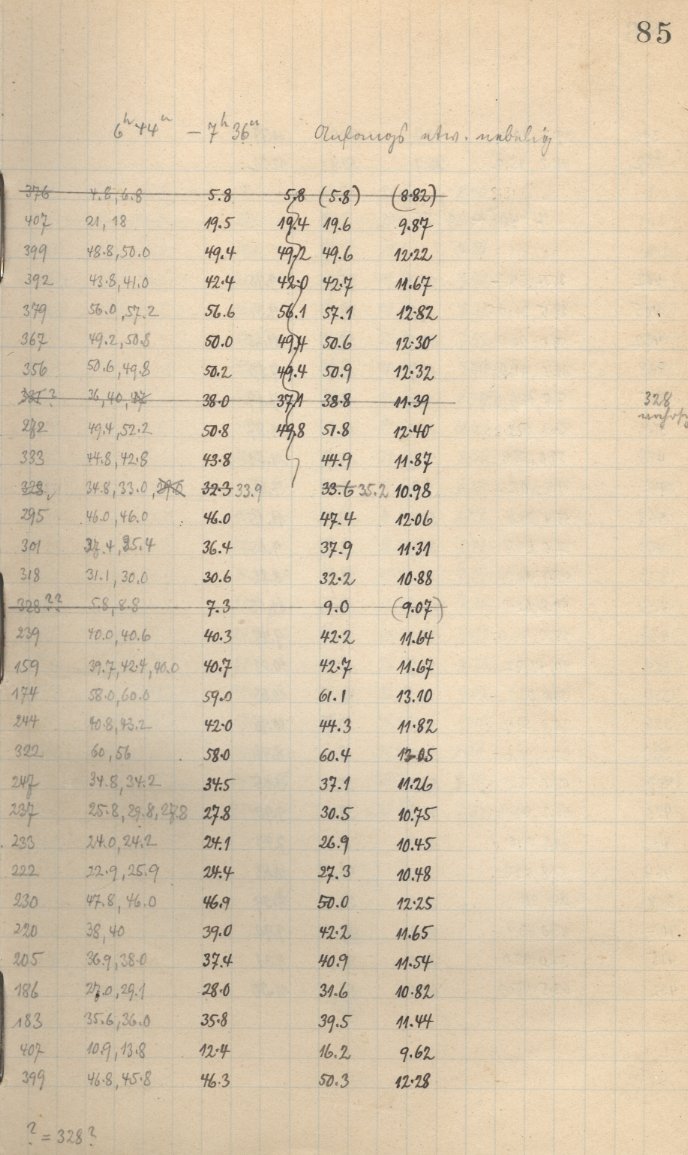 85
6ʰ 44ᵐ – 7ʰ 36ᵐ Anfangs etw. nebelig
376 4.8, 6.8 5.8 5,8 (5.8) (8.82)
407 21, 18 19.5 19.4 19.6 9.87
399 48.8, 50.0 49.4 49.2 49.6 12.22
392 43.8, 41.0 42.4 42.0 42.7 11.67
379 56.0, 57.2 56.6 56.1 57.1 12.82
367 49.2, 50.8 50.0 49.4 50.6 12.30
356 50.6, 49.8 50.2 49.4 50.9 12.32
? 36, 40, 38.0 37.1 38.8 11.39 328
282 49.4, 52.2 50.8 49.8 51.8 12.40
333 44.8, 42.8 43.8 44.9 11.87
328, 34.8, 33.0, 32.3 33.9 33.6 35.2 10.98
295 46.0, 46.0 46.0 47.4 12.06
301 37.4, 35.4 36.4 37.9 11.31
318 31.1, 30.0 30.6 32.2 10.88
328 ?? 5.8, 8.8 7.3 9.0 (9.07)
239 40.0, 40.6 40.3 42.2 11.64
159 39.7, 42.4, 40.0 40.7 42.7 11.67
174 58.0, 60.0 59.0 61.1 13.10
244 40.8, 43.2 42.0 44.3 11.82
322 60, 56 58.0 60.4 13.05
247 34.8, 34.2 34.5 37.1 11.26
237 25.8, 29.8, 27.8 27.8 30.5 10.75
233 24.0, 24.2 24.1 26.9 10.45
222 22.9, 25.9 24.4 27.3 10.48
230 47.8, 46.0 46.9 50.0 12.25
220 38, 40 39.0 42.2 11.65
205 36.9, 38.0 37.4 40.9 11.54
186 27.0, 29.1 28.0 31.6 10.82
183 35.6, 36.0 35.8 39.5 11.44
407 10.9, 13.8 12.4 16.2 9.62
399 46.8, 45.8 46.3 50.3 12.28
? = 328?